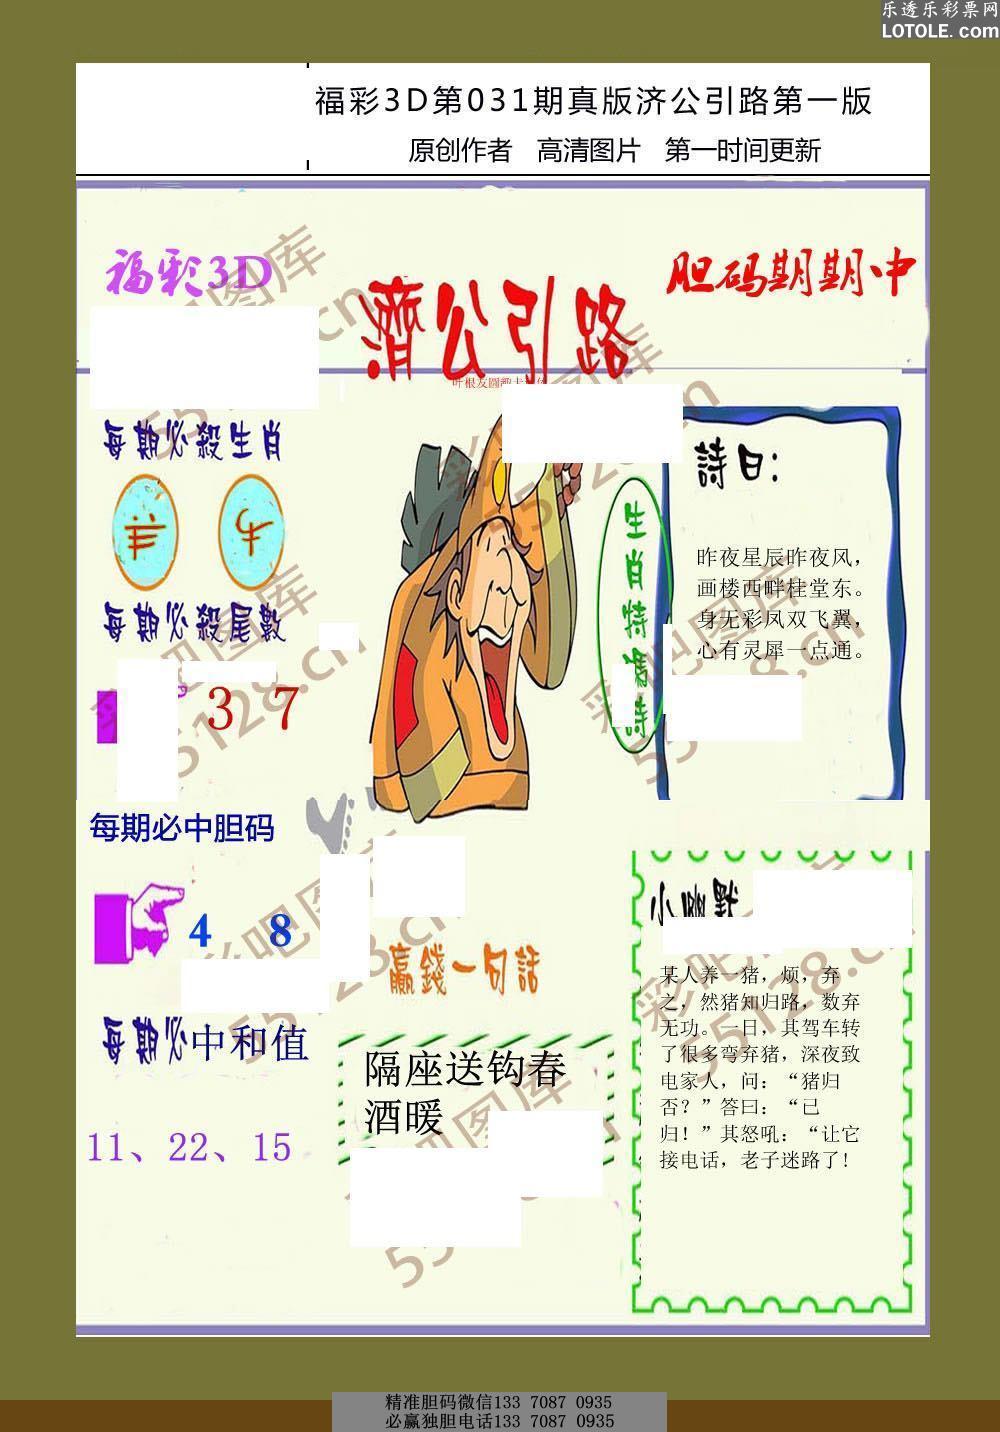 乐透乐彩票网
LOTOLE.com
福彩3D第031期真版济公引路第一版
原创作者 高清图片 第一时间更新
福彩3D
濟公引路
胆码期期中
每期必殺生肖
羊 牛
每期必殺尾數
3 7
每期必中胆码
4 8
每期必中和值
11、22、15
生肖特碼詩
詩曰：
昨夜星辰昨夜风，
画楼西畔桂堂东。
身无彩凤双飞翼，
心有灵犀一点通。
赢錢一句話
隔座送钩春
酒暖
小幽默
某人养一猪，烦，弃
之，然猪知归路，数弃
无功。一日，其驾车转
了很多弯弃猪，深夜致
电家人，问：“猪归
否？”答曰：“已
归！”其怒吼：“让它
接电话，老子迷路了!
彩吧图库
55128.cn
精准胆码微信133 7087 0935
必赢独胆电话133 7087 0935